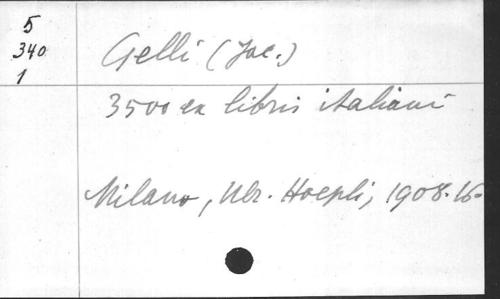 5
340
1
Gelli (Jac.)
3500 ex libris italiani
Milano, Ulr. Hoepli, 1908. 16°